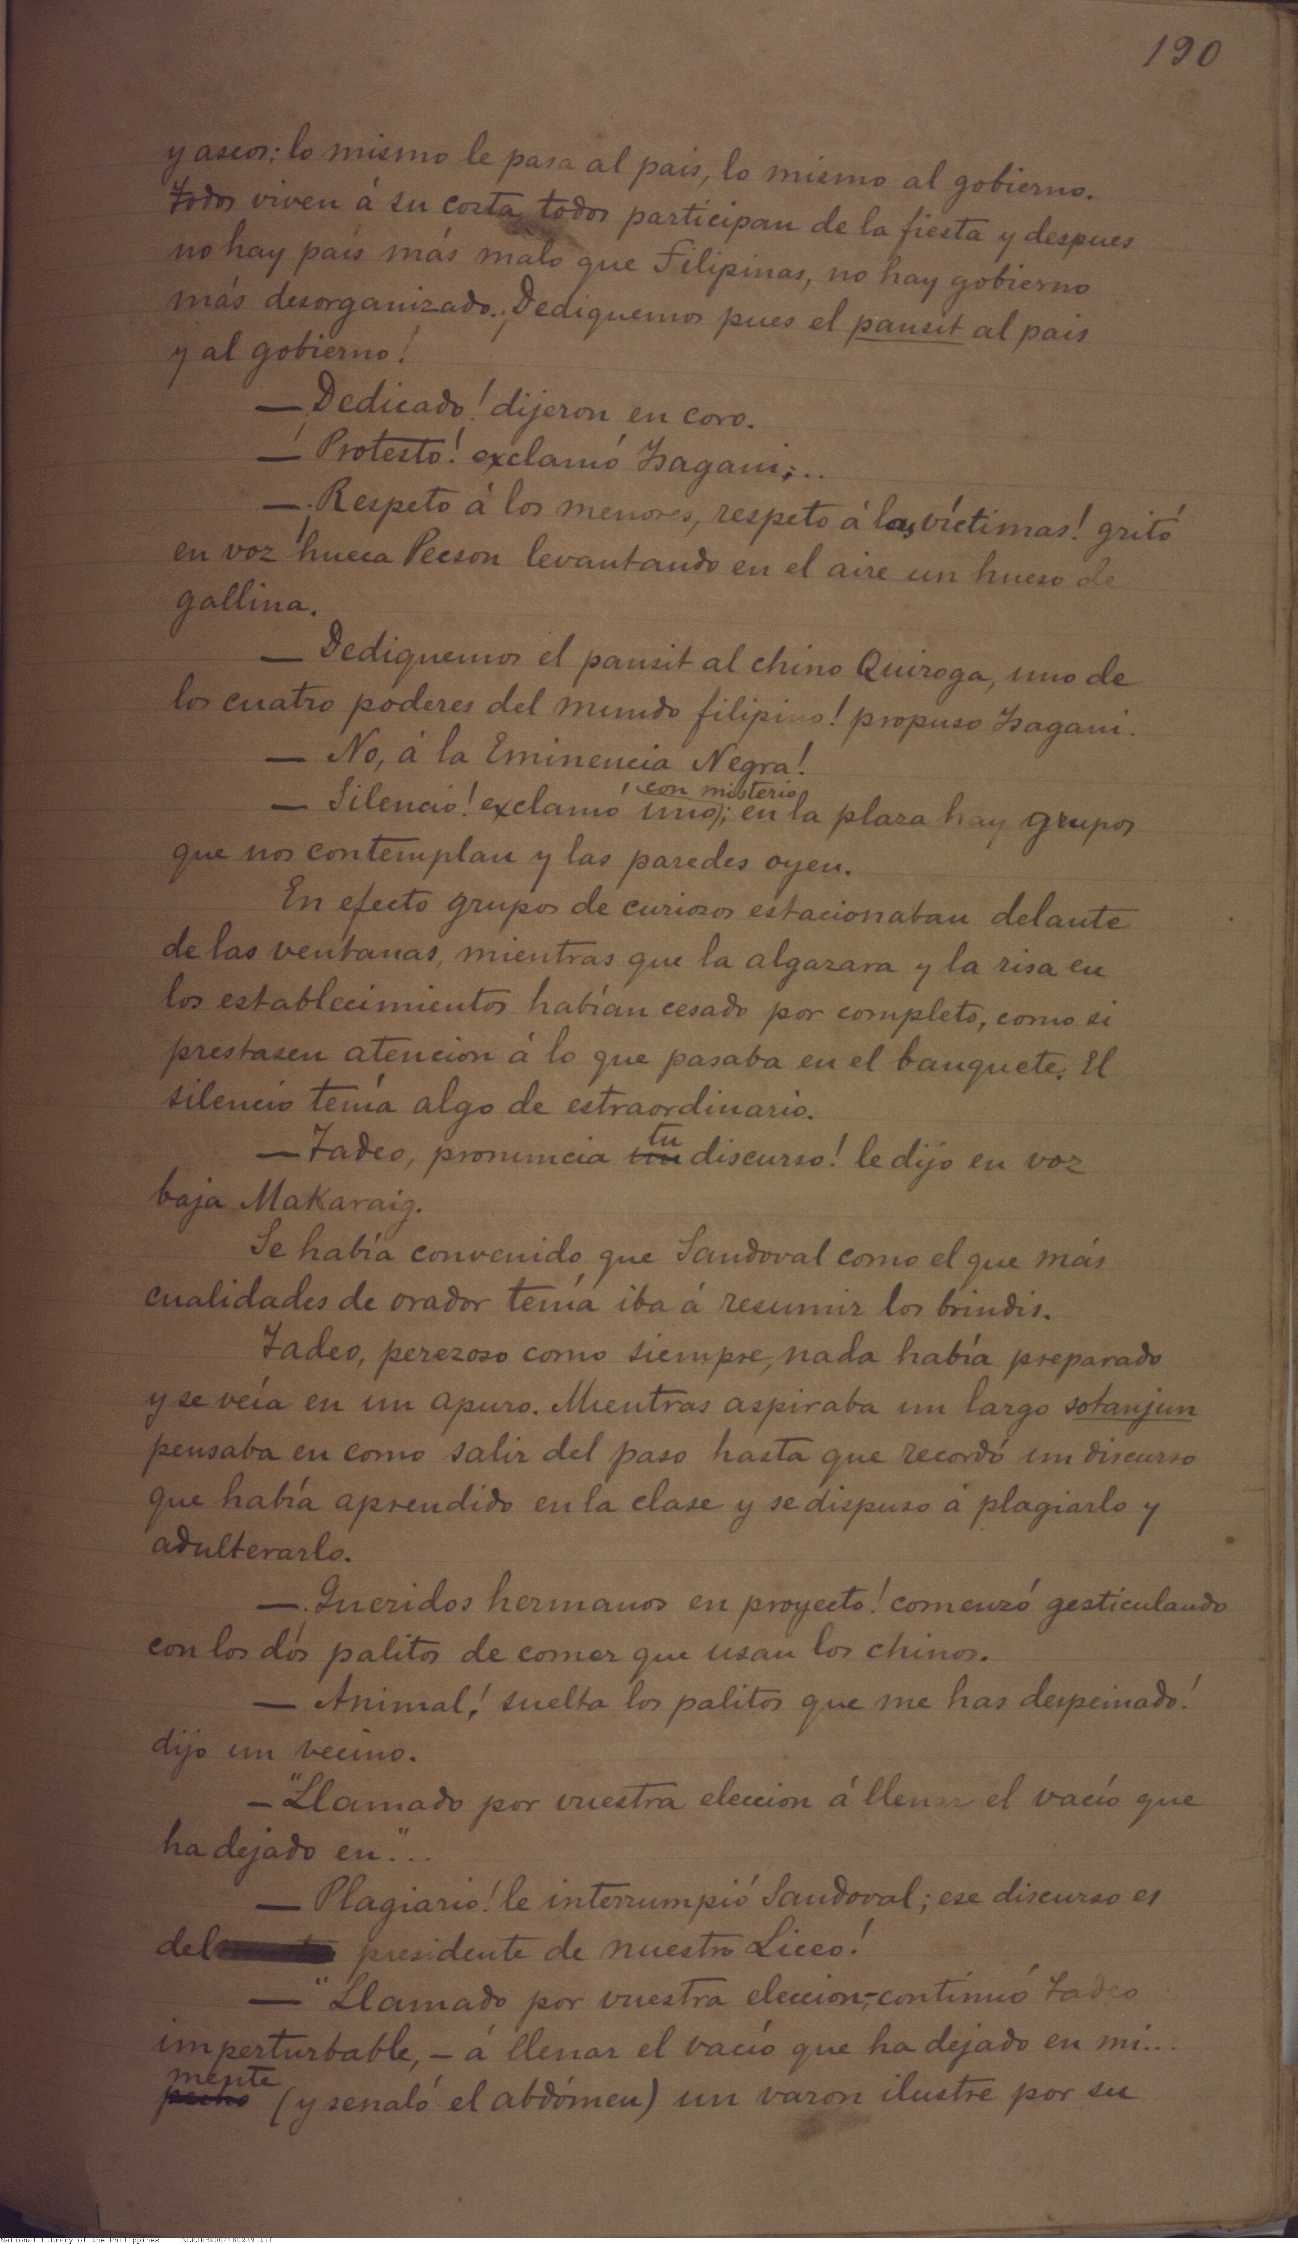 190
y aseos; lo mismo le pasa al pais, lo mismo al gobierno.
Todos viven á su costa, todos participan de la fiesta y despues
no hay país más malo que Filipinas, no hay gobierno
más desorganizado. ¡Dediquemos pues el pansit al pais
y al gobierno!
— ¡Dedicado! dijeron en coro.
— ¡Protesto! exclamó Isagani; ..
— ¡Respeto á los menores, respeto á las víctimas! gritó
en voz hueca Pecson levantando en el aire un hueso de
gallina.
— Dediquemos el pansit al chino Quiroga, uno de
los cuatro poderes del mundo filipino! propuso Isagani.
— No, á la Eminencia Negra!
— Silencio! exclamó uno, con misterio; en la plaza hay grupos
que nos contemplan y las paredes oyen.
En efecto grupos de curiosos estacionaban delante
de las ventanas, mientras que la algazara y la risa en
los establecimientos habían cesado por completo, como si
prestasen atencion á lo que pasaba en el banquete. El
silencio tenía algo de estraordinario.
— Tadeo, pronuncia un tu discurso! le dijo en voz
baja Makaraig.
Se había convenido que Sandoval como el que más
cualidades de orador tenía iba á resumir los brindis.
Tadeo, perezoso como siempre, nada había preparado
y se veía en un apuro. Mientras aspiraba un largo sotanjun
pensaba en como salir del paso hasta que recordó un discurso
que había aprendido en la clase y se dispuso á plagiarlo y
adulterarlo.
— ¡Queridos hermanos en proyecto! comenzó gesticulando
con los dos palitos de comer que usan los chinos.
— Animal! suelta los palitos que me has despeinado!
dijo un vecino.
— "Llamado por vuestra eleccion á llenar el vacío que
ha dejado en"...
— Plagiario! le interrumpió Sandoval; ese discurso es
del presidente de nuestro Liceo!
— "Llamado por vuestra eleccion,-continuó Tadeo
imperturbable, — á llenar el vacío que ha dejado en mi...
pecho mente (y señaló el abdómen) un varon ilustre por su
National Library of the Philippines